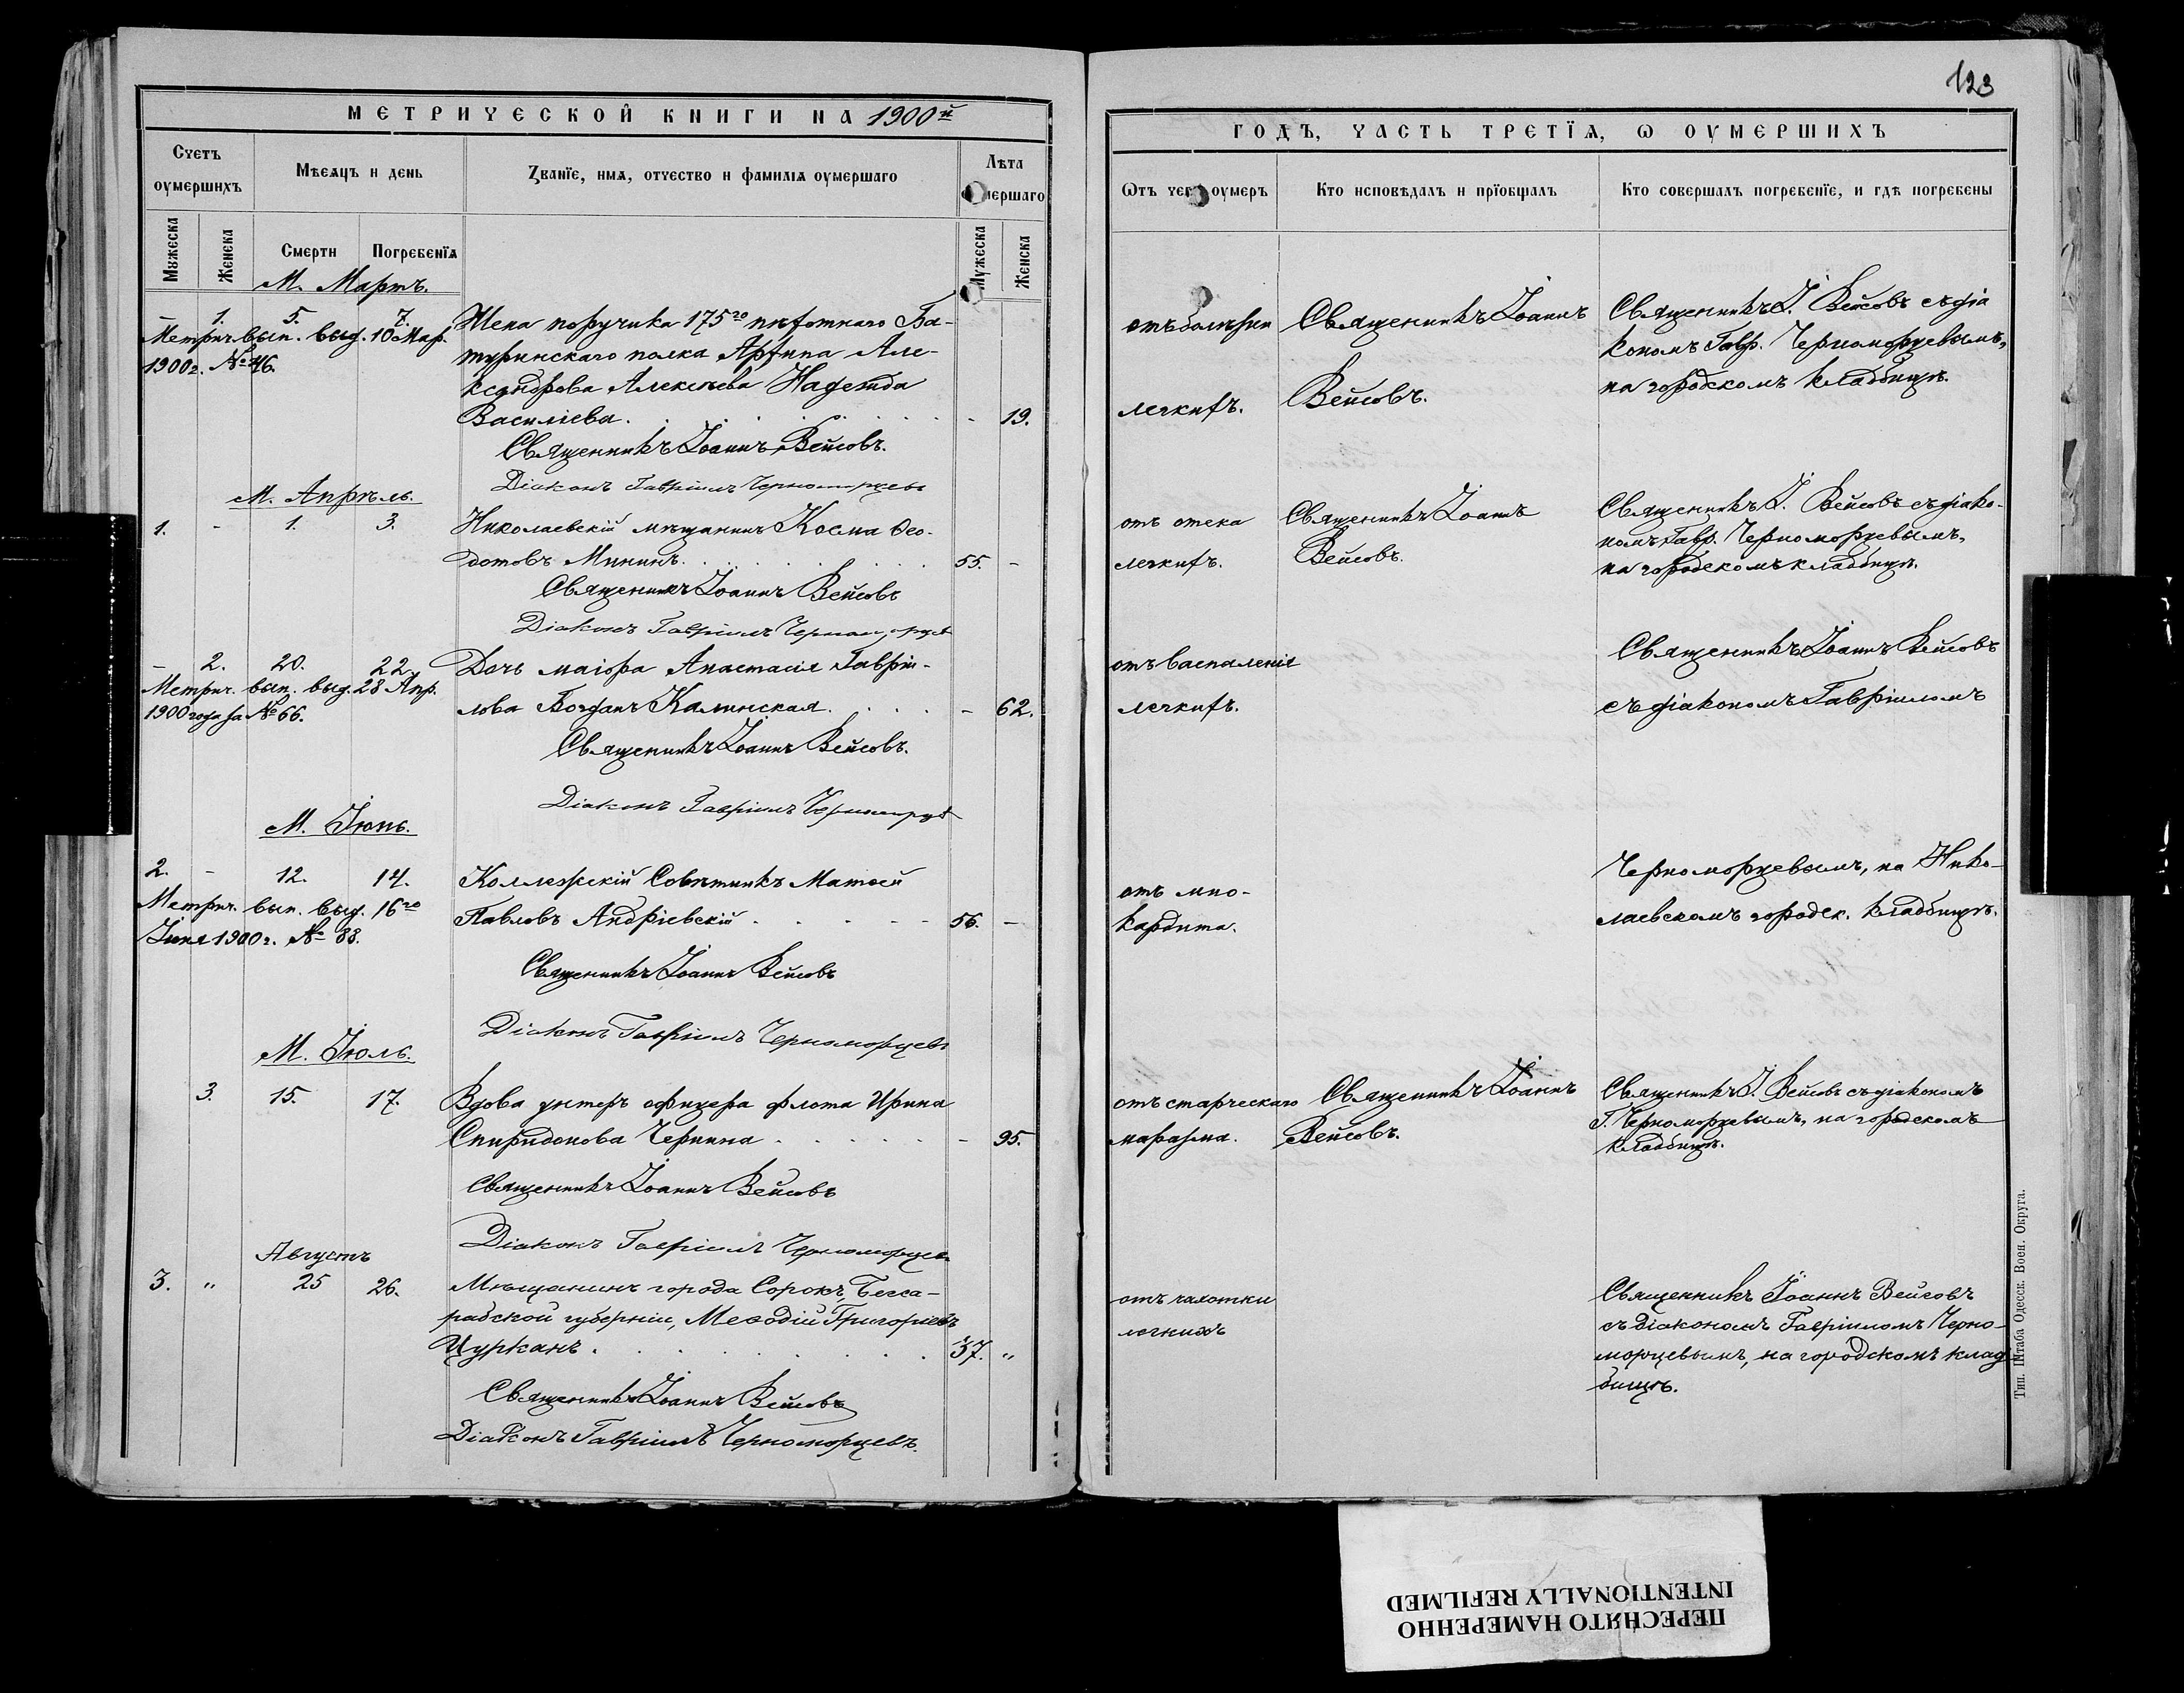 123
МЕТРИЧЕСКОЙ КНИГИ НА 1900й
ГОДЪ, ЧАСТЬ ТРЕТІѦ, Ѡ ОУМЕРШИХЪ
Счетъ оумершихъ
Мѣсяцъ и день
Званїе, имѧ, отчество и фамилїѧ оумершаго
Лѣта
Мужеска
Женска
Смерти
Погребенїѧ
Мужеска
Женска
Кто исповѣдалъ и прїобщалъ
Кто совершалъ погребенїе, и гдѣ погребены
М. Мартъ.
- 1. 5. 7.
Метрич. вып. выд. 10 Мар.
1900 г. № 46.
Жена поручика 175го пѣхотнаго Ба-
туринскаго полка
Алексѣева Надежда
Василіева. - 19.
Священникъ Іоаннъ Вейсовъ.
Діаконъ Гавріилъ Черноморцевъ
отъ болѣзни
легкихъ.
Священникъ Іоаннъ
Вейсовъ.
Священникъ І. Вейсовъ съ діа
кономъ Гавр. Черноморцевымъ,
на городскомъ кладбищѣ.
М. Апрѣль.
1. - 1. 3.
Николаевскій мѣщанинъ Косма Ѳео-
дотовъ Мининъ. 55. -
Священникъ Іоаннъ Вейсовъ
Діаконъ Гавріилъ Черноморцевъ
отъ отека
легкихъ.
Священникъ Іоаннъ
Вейсовъ.
Священникъ І. Вейсовъ съ діако-
номъ Гавр. Черноморцевымъ,
на городскомъ кладбищѣ.
- 2. 20. 22.
Метрич. вып. выд. 28 Апр.
1900 года за № 66.
Дочь маіора Анастасія Гавріи-
лова Богданъ Калинская. - 62.
Священникъ Іоаннъ Вейсовъ.
Діаконъ Гавріилъ Черноморцевъ
отъ воспаленія
легкихъ.
Священникъ Іоаннъ Вейсовъ
съ діакономъ Гавріиломъ
М. Іюнь.
2. - 12. 14.
Метрич. вып. выд. 16го
Іюня 1900 г. № 88.
Коллежскій Совѣтникъ Матѳей
Павловъ Андріевскій - 56. -
Священникъ Іоаннъ Вейсовъ
Діаконъ Гавріилъ Черноморцевъ
отъ мио-
кардита.
Черноморцевымъ, на Нико-
лаевскомъ городск. кладбищѣ.
М. Іюль.
3. 15. 17.
Вдова унтеръ офицера флота Ирина
Спиридонова Чернина - 95.
Священникъ Іоаннъ Вейсовъ
Діаконъ Гавріилъ Черноморцевъ
отъ старческаго
маразма.
Священникъ Іоаннъ
Вейсовъ.
Священникъ І. Вейсовъ съ діакономъ
Г. Черноморцевымъ, на городскомъ
кладбищѣ.
Августъ
3. „ 25 26.
Мѣщанинъ города Сорокъ, Бесса-
рабской губерніи, Меѳодій Григоріевъ
Цурканъ. 37. „
Священникъ Іоаннъ Вейсовъ
Діаконъ Гавріилъ Черноморцевъ.
отъ чахотки
легкихъ
Священникъ Іоаннъ Вейсовъ
съ діакономъ Гавріиломъ Черно-
морцевымъ, на городскомъ клад-
бищѣ.
Тип. Штаба Одесск. Воен. Округа.
ПЕРЕСНЯТО НАМЕРЕННО
INTENTIONALLY REFILMED